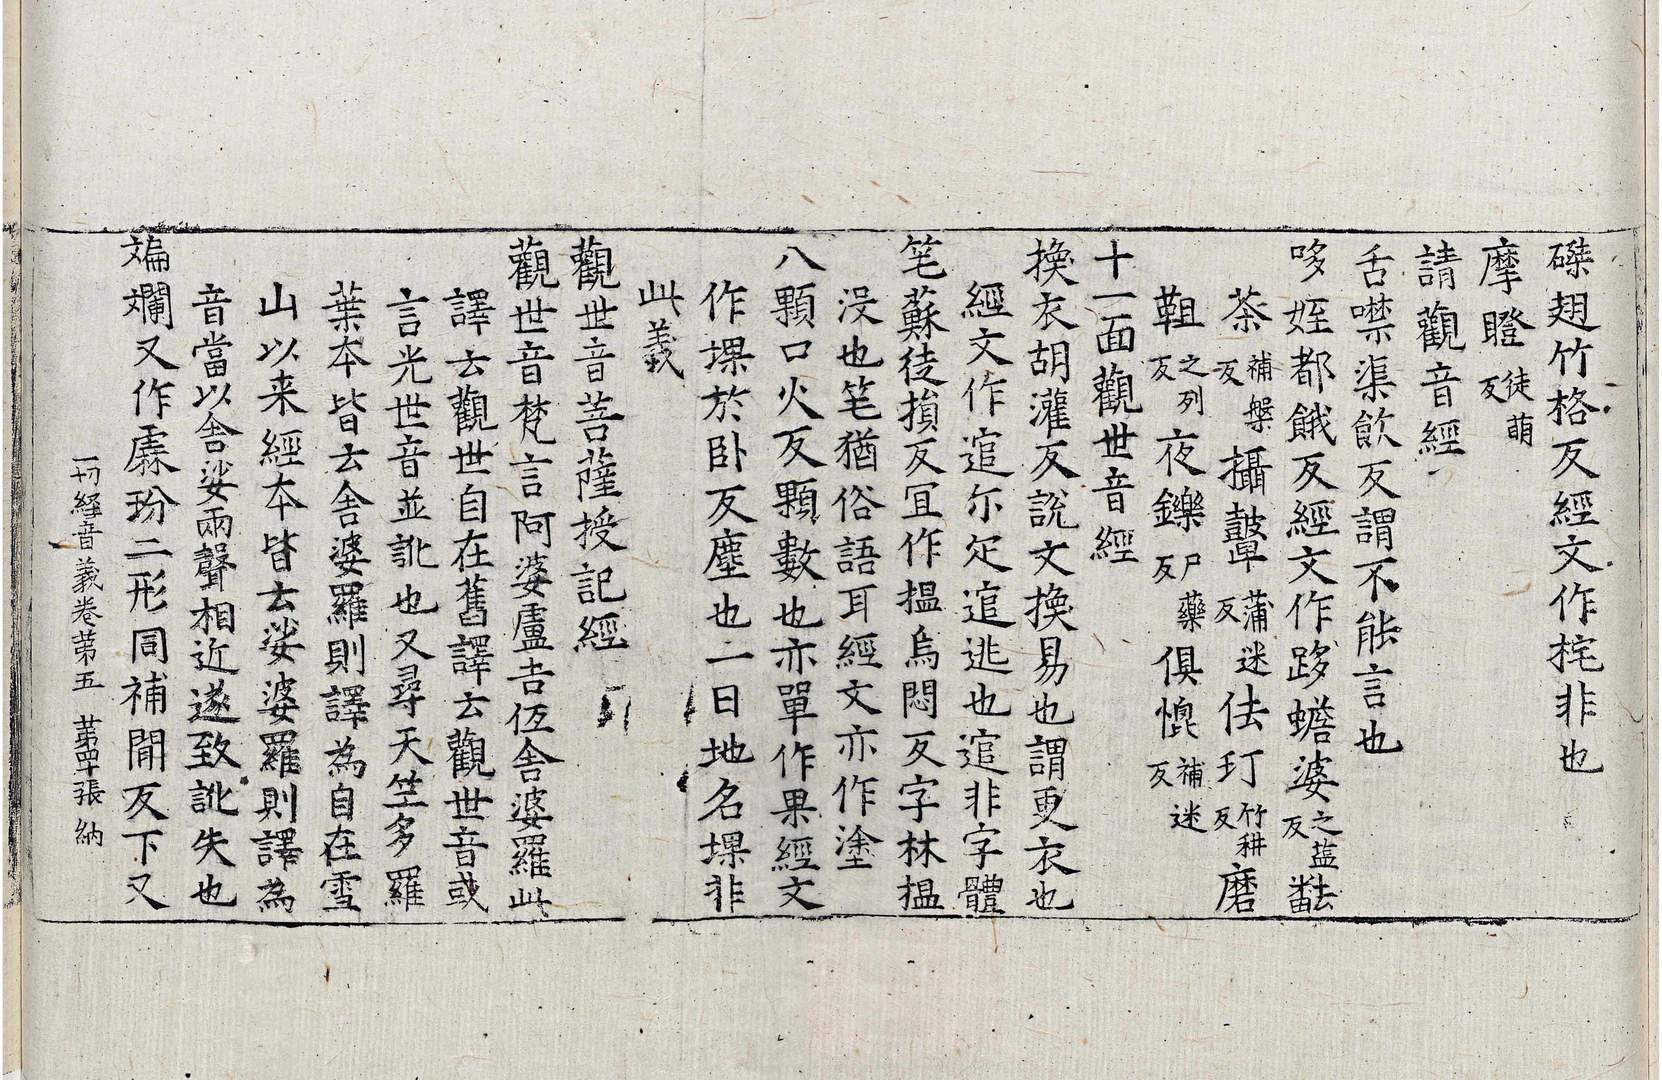 磔翅竹格反經文作挓非也
摩瞪徒萌反
請觀音經
舌噤渠飲反謂不能言也
哆姪都餓反經文作跢蟾婆之盐反㘒
荼補槃反攝鼙蒲迷反佉玎竹耕反磨
靻之列反夜鑠尸藥反俱㦤補迷反
十一面觀世音經
換衣胡灌反說文換易也謂更衣也
經文作逭尓疋逭逃也逭非字體
笔蘇徒損反冝作揾烏悶反字林揾
没也笔猶俗語耳經文亦作塗
八顆口火反顆數也亦單作果經文
作堁於卧反塵也一日地名堁非
此義
觀世音菩薩授記經
觀世音梵言阿婆盧吉伍舎婆羅此
譯云觀世自在舊譯云觀世音或
言光世音並訛也又尋天竺多羅
葉本皆云舎婆羅則譯為自在雪
山以来經本皆云娑婆羅則譯為
音當以舎娑兩聲相近遂致訛失也
斒斕又作虨玢二形同補閒反下又
一切經音義卷第五 第四張 納